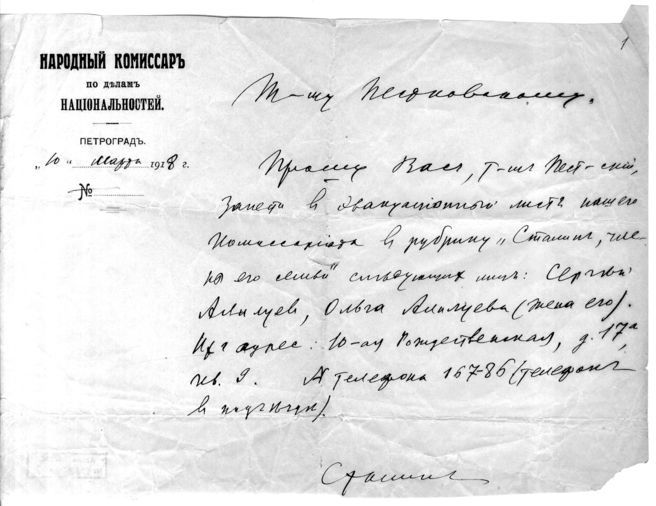 1
НАРОДНЫЙ КОМИССАРЪ
ПО ДѢЛАМЪ
НАЦІОНАЛЬНОСТЕЙ.
ПЕТРОГРАДЪ.
„10" Марта 1918 г.
№
Т-щу Пестковскому.
Прошу Васъ, т-щъ Пест-скій,
занести в эвакуаціонный листъ нашего
Комиссаріата в рубрику „Сталин, чле-
ны его семьи" следующих лицъ: Сергей
Алилуев, Ольга Алилуева (жена его).
Их адрес: 10-ая Рождественская, д. 17а,
кв. 9. № телефона 167-86 (телефон
в
Сталин